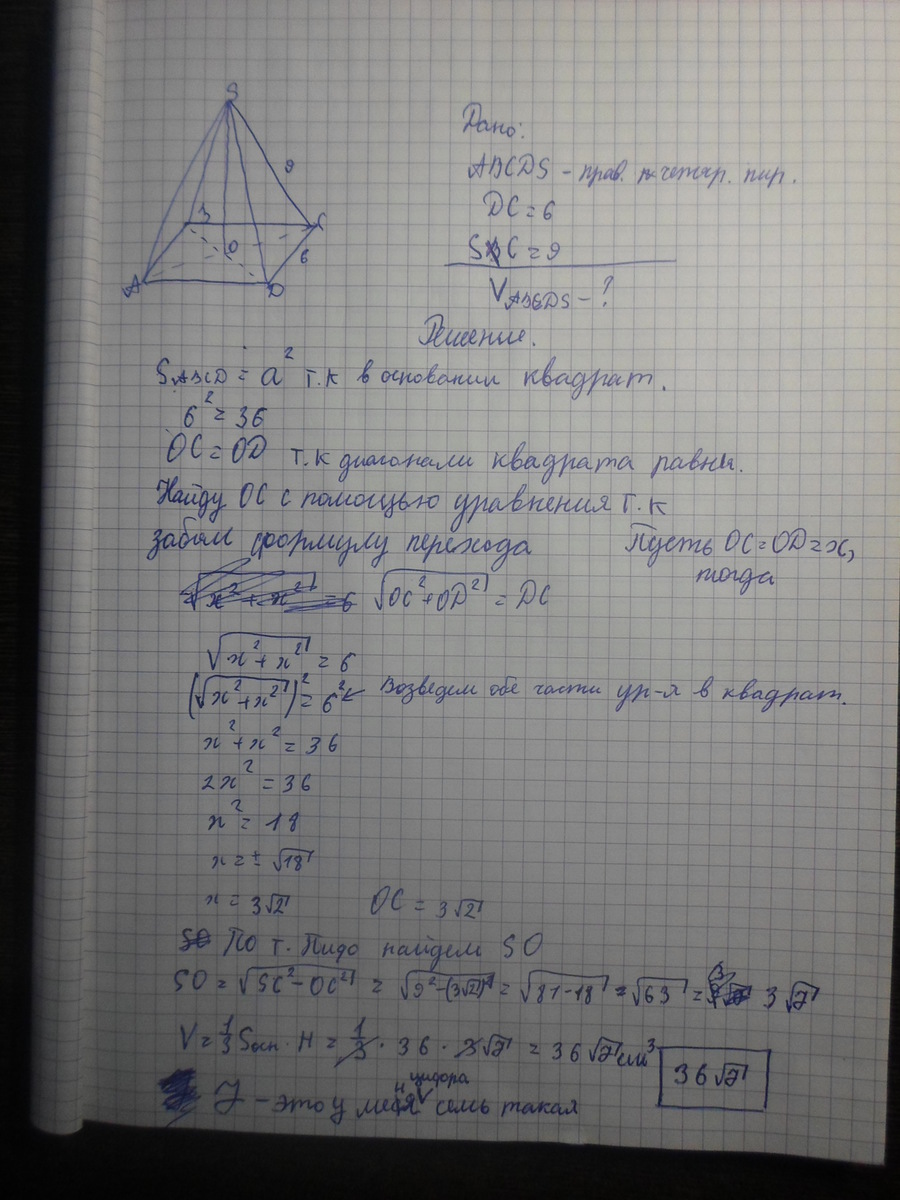 S
9
B
C
O
6
A
D
Дано:
ABCDS - прав. четыр. пир.
DC = 6
SC = 9
V ABCDS - ?
Решение.
S ABCD = a² т.к в основании квадрат.
6² = 36
OC = OD т.к диагонали квадрата равны.
Найду OC с помощью уравнения т.к
забыл формулу перехода
Пусть OC = OD = x,
тогда
√x² + x² = 6 √OC² + OD² = DC
√x² + x² = 6
(√x² + x²)² = 6² ← Возведем обе части ур-я в квадрат.
x² + x² = 36
2x² = 36
x² = 18
x = ± √18
x = 3√2 OC = 3√2
По т. Пифо найдем SO
SO = √SC² - OC² = √9² - (3√2)² = √81 - 18 = √63 = 3√7
V = 1/3 Sосн · H = 1/3 · 36 · 3√7 = 36√7 см³
36√7
7 - это у меня цифра семь такая